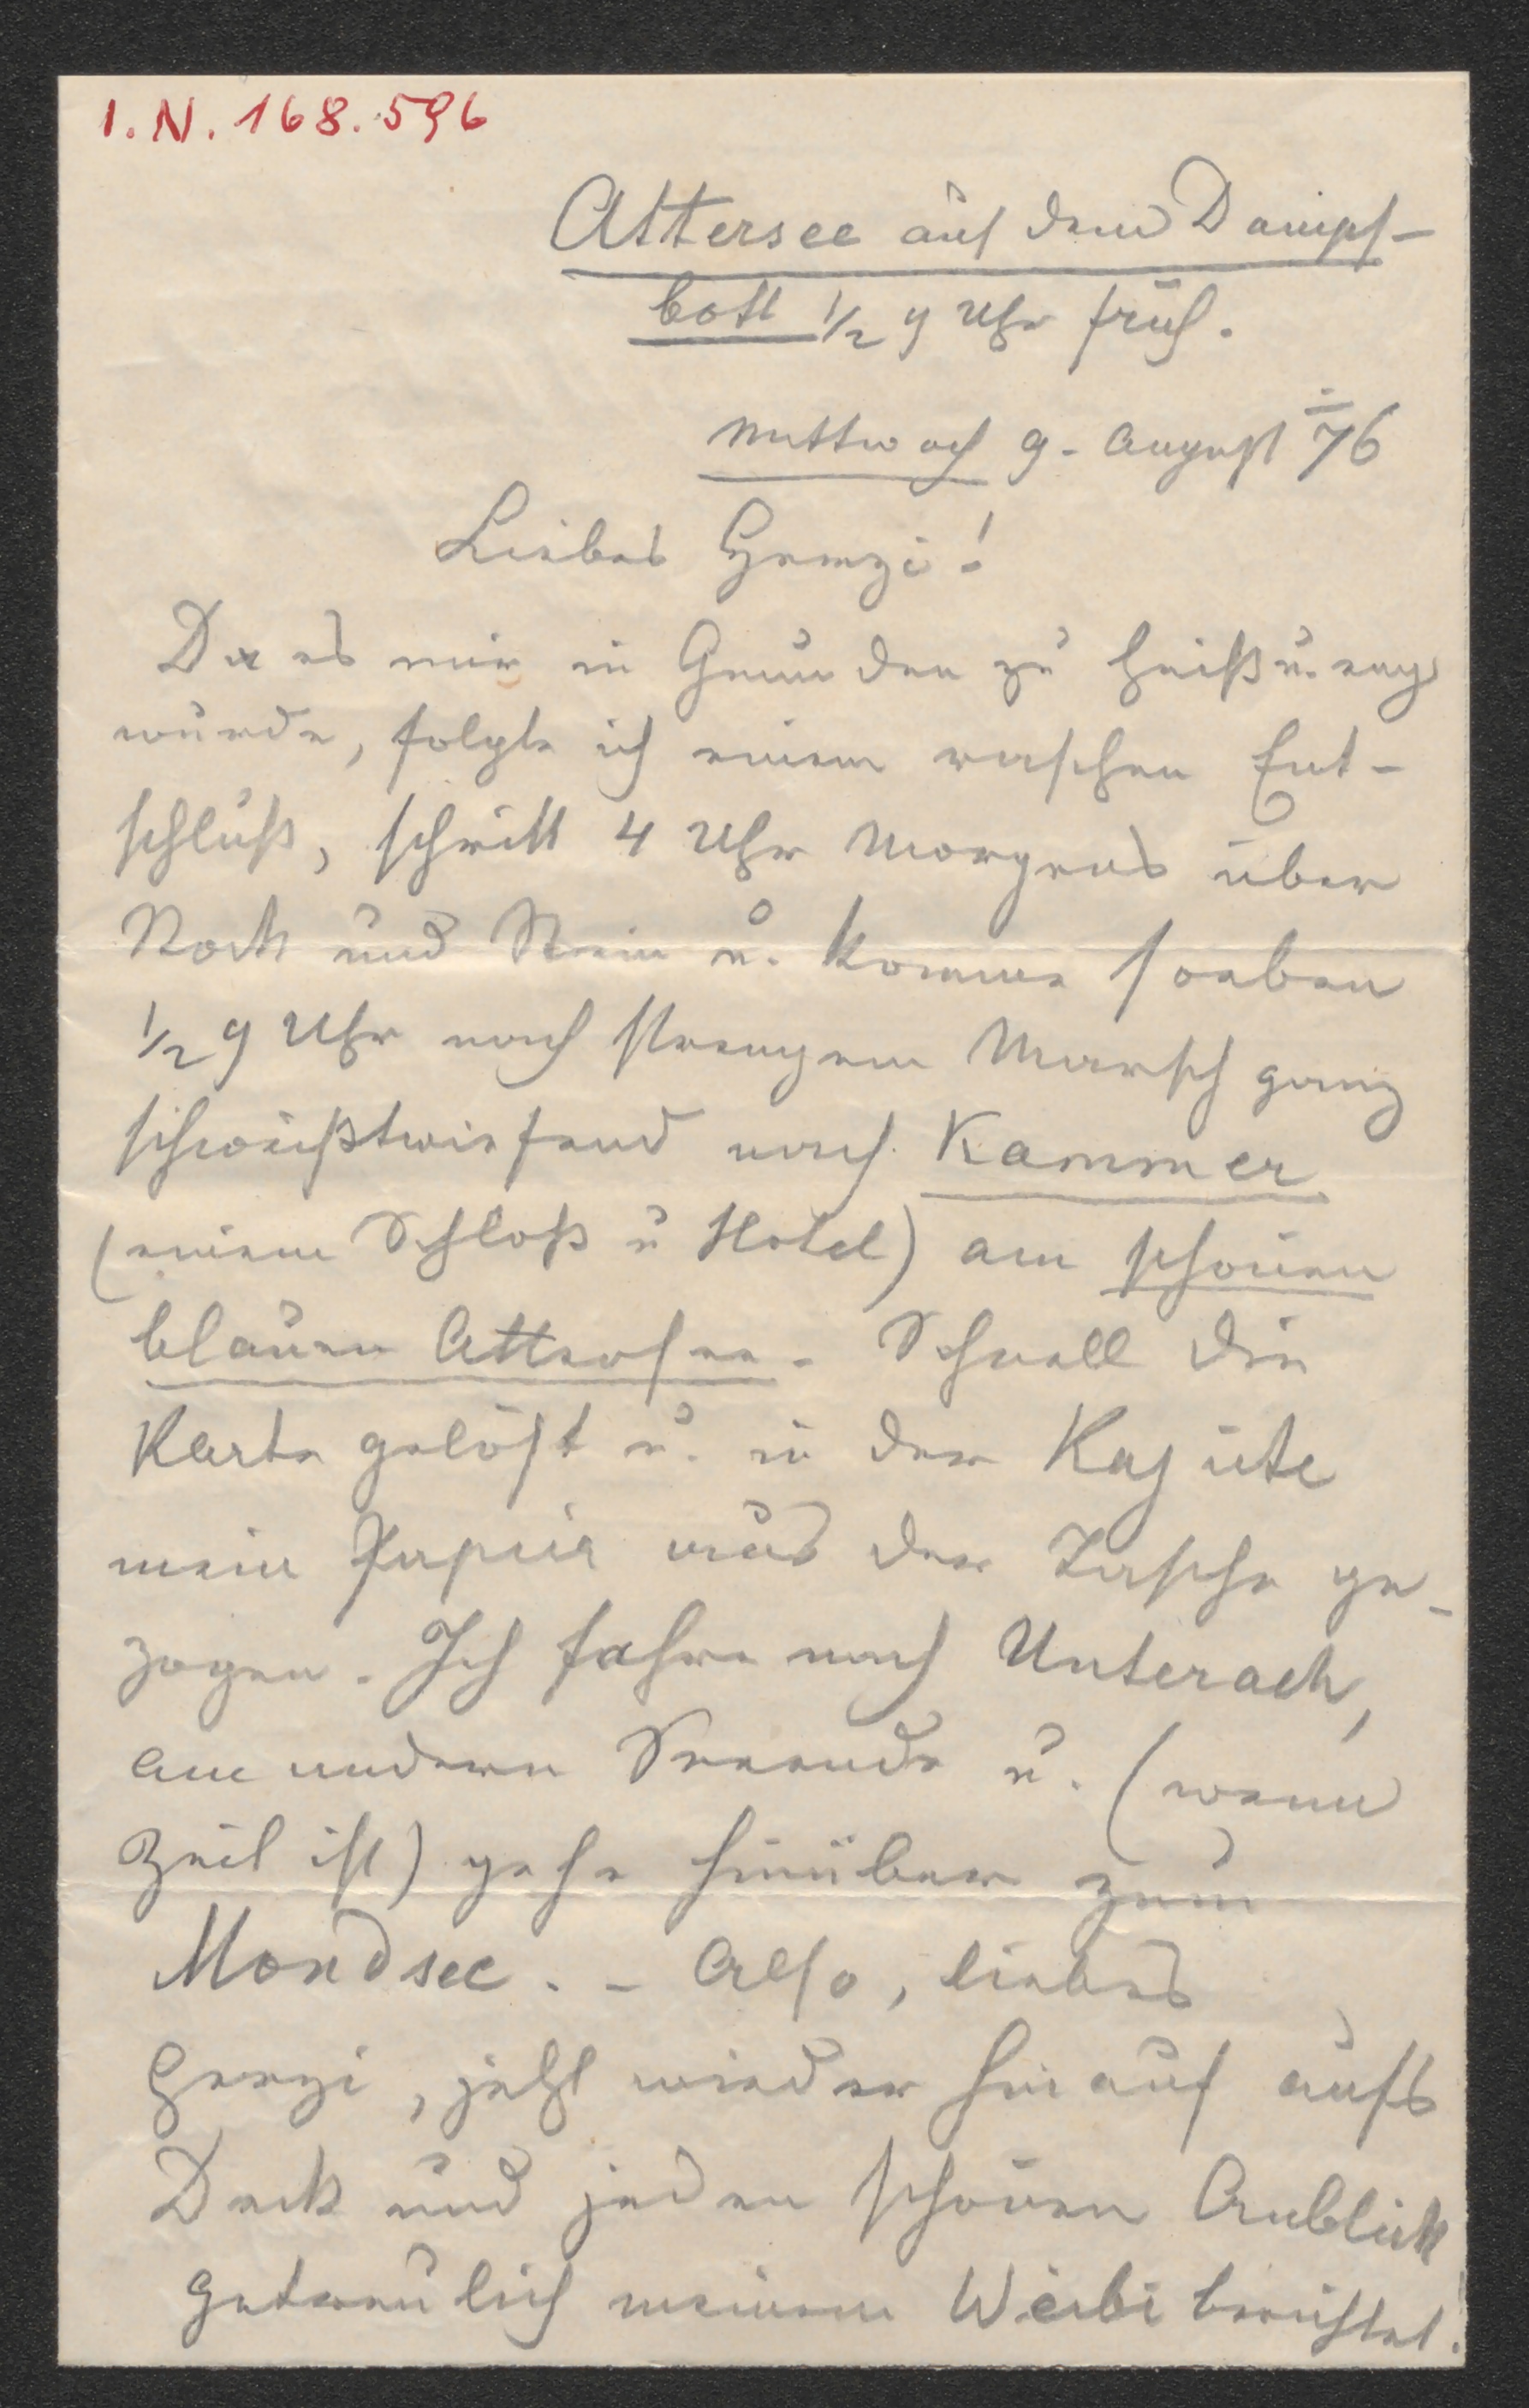 I.N. 168.596
Attersee auf dem Dampf-
bott ½ 9 Uhr früh.
Mittwoch 9. August 76
Liebes Herzi!
Da es mir in Gmunden zu heiß u. eng
wurde, folgte ich einem raschen Ent-
schluß, schritt 4 Uhr Morgens über
Stock und Stein u. komme soeben
½ 9 Uhr nach strengem Marsch ganz
schweißtriefend nach Kammer
(einem Schloß u Hotel) am schönen
blauen Attersee. Schnell die
Karte gelöst u. in der Kajüte
mein Papier aus der Tasche ge-
zogen. Ich fahre nach Unterach,
am andern Seeende u. (wenn
Zeit ist) gehe hinüber zum
Mondsee. - Also, liebes
Herzi, jetzt wieder hinauf aufs
Deck und jeden schönen Anblick
getreulich meinem Weibi berichtet!